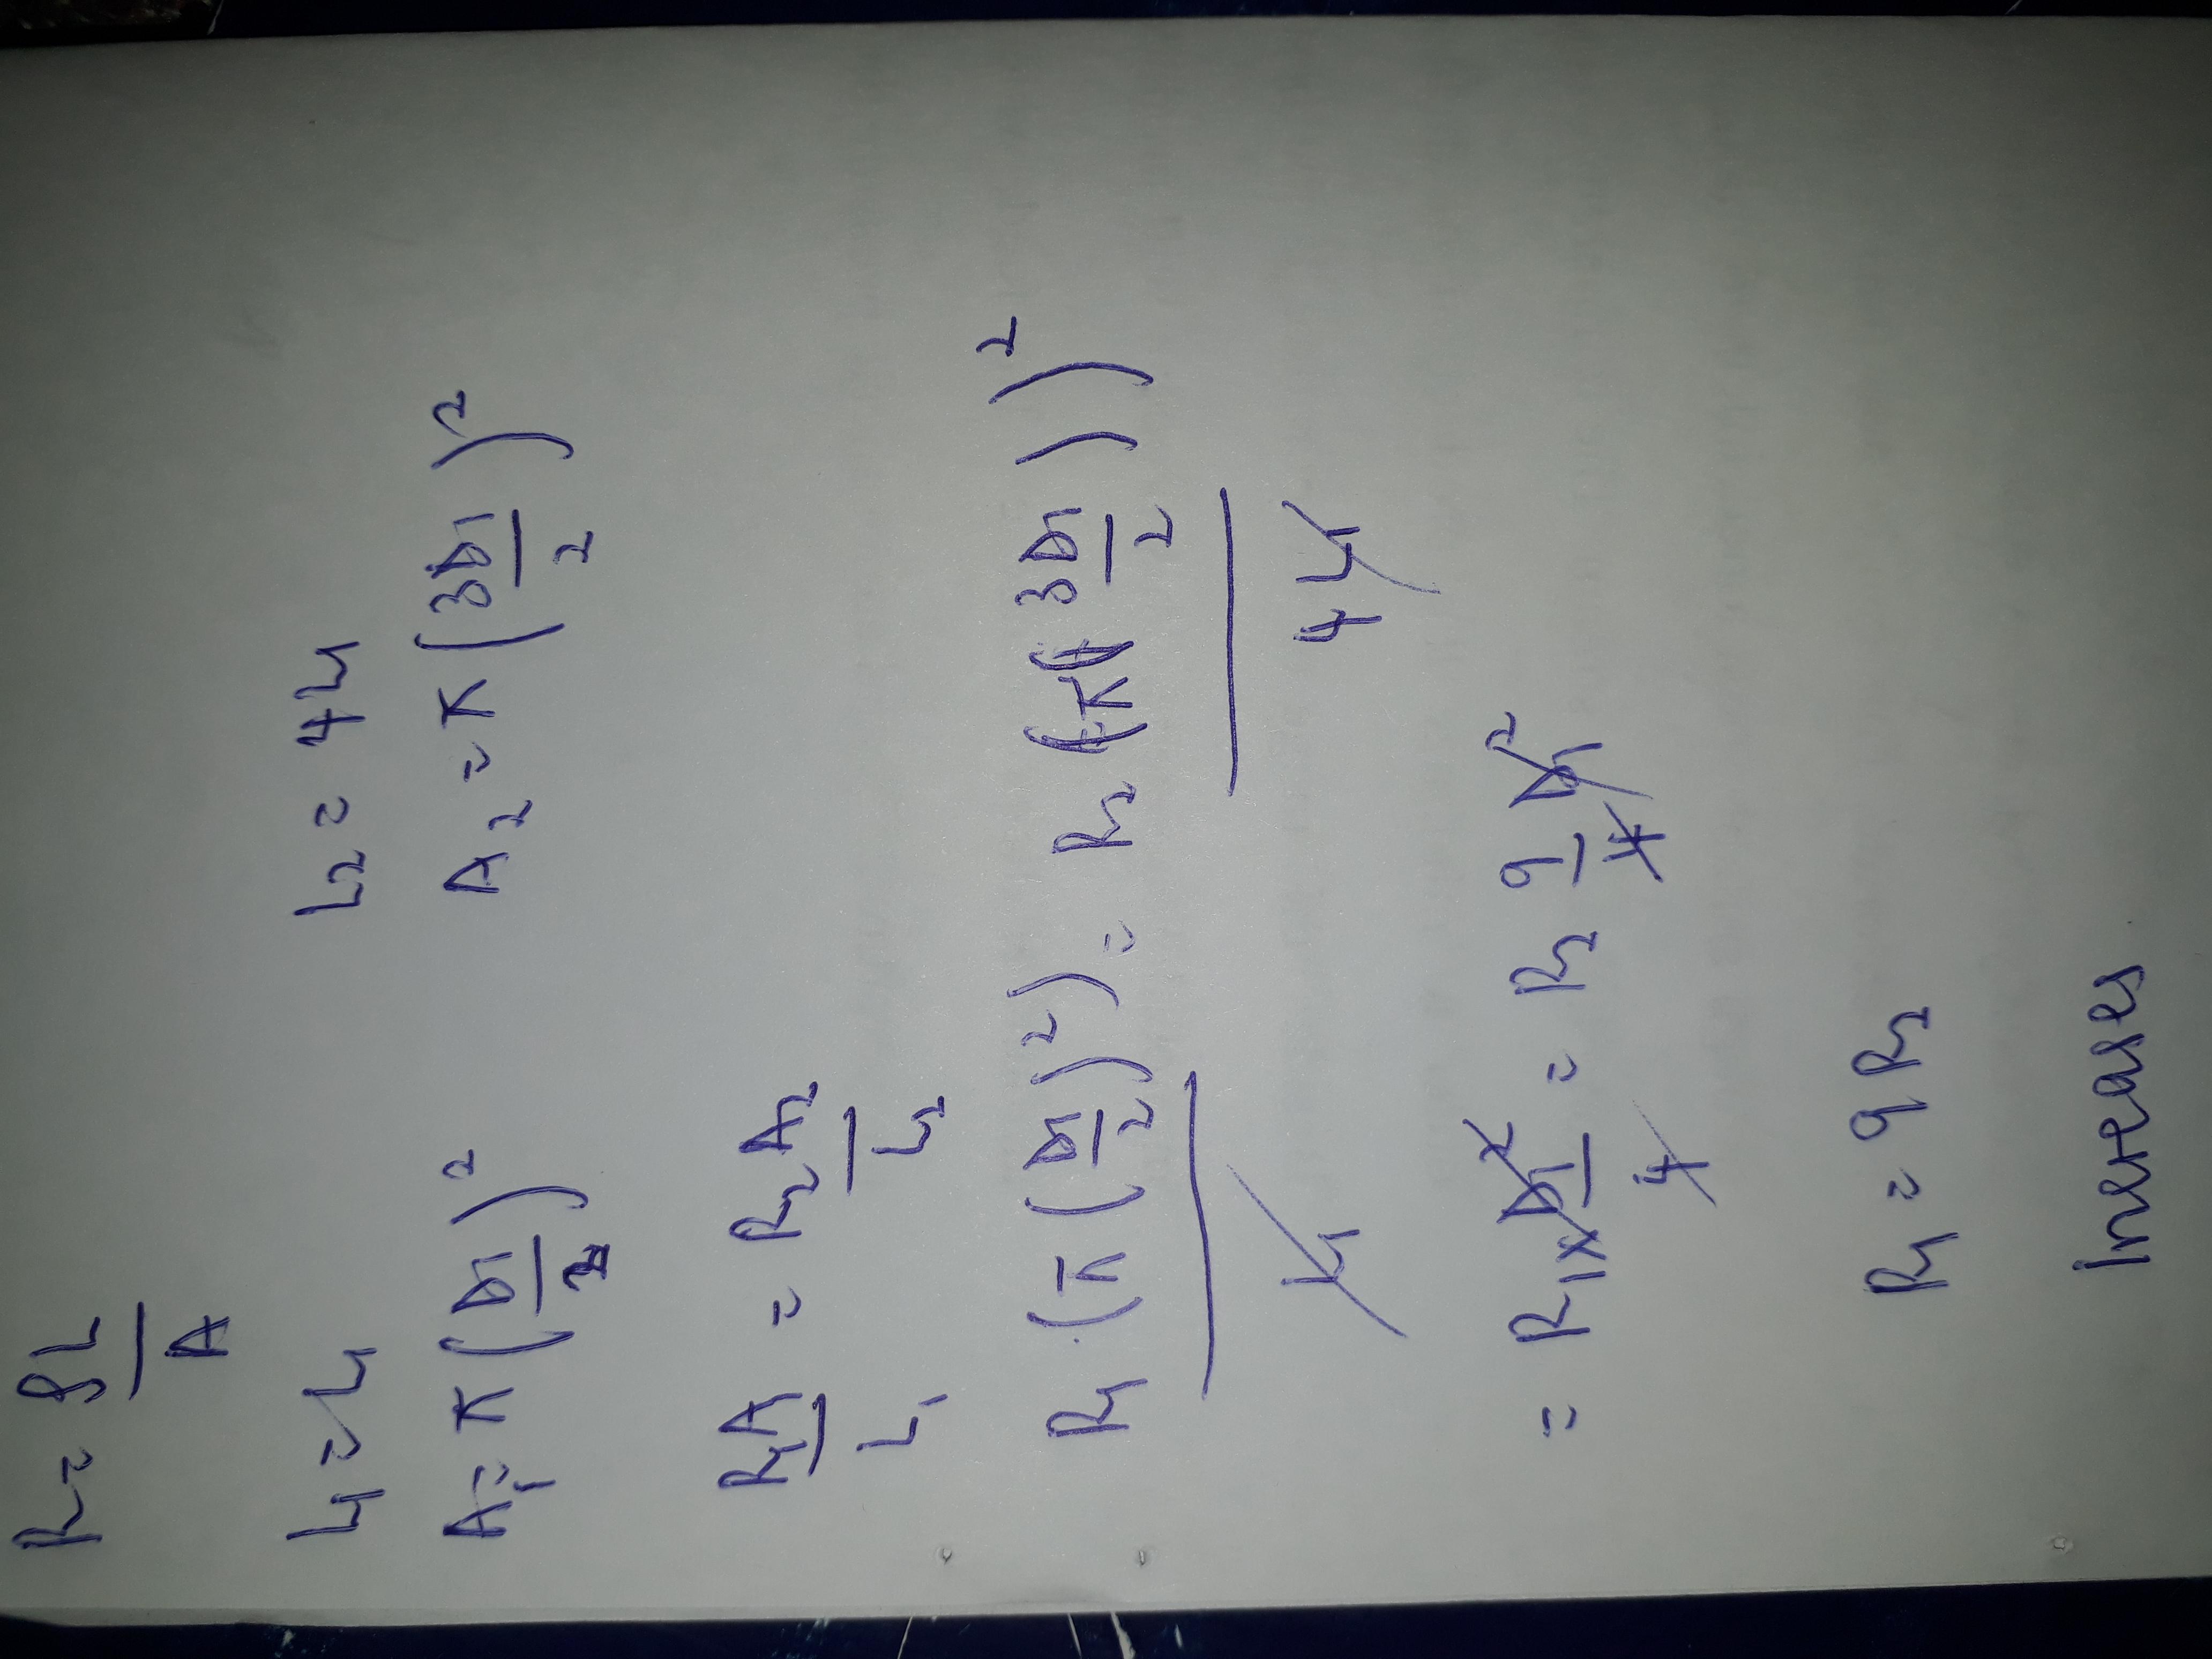 R = ρL/A
L1 = L1    L2 = 4L1
A1 = π(D1/2)²    A2 = π(3D1/2)²
R1A/L1 = R2A2/L2
R1(π(D1/2)²)/L1 = R2(π(3D1/2))²/4L1
= R1 x D1²/4 = R2 9/4 D1²
R1 = 9R2
increases